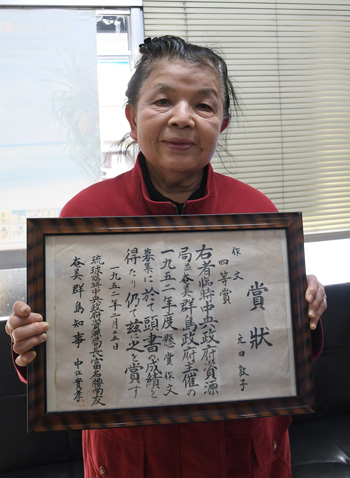 賞状
作文
四等賞
元田敦子
右者臨時中央政府資源
局並奄美群島政府主催の
一九五二年度懸賞作文
募集に於て頭書の成績を
得たり仍て茲に之を賞す
一九五二年二月五日
琉球臨時中央政府資源局長富名腰尚友
奄美群島知事 中江實孝